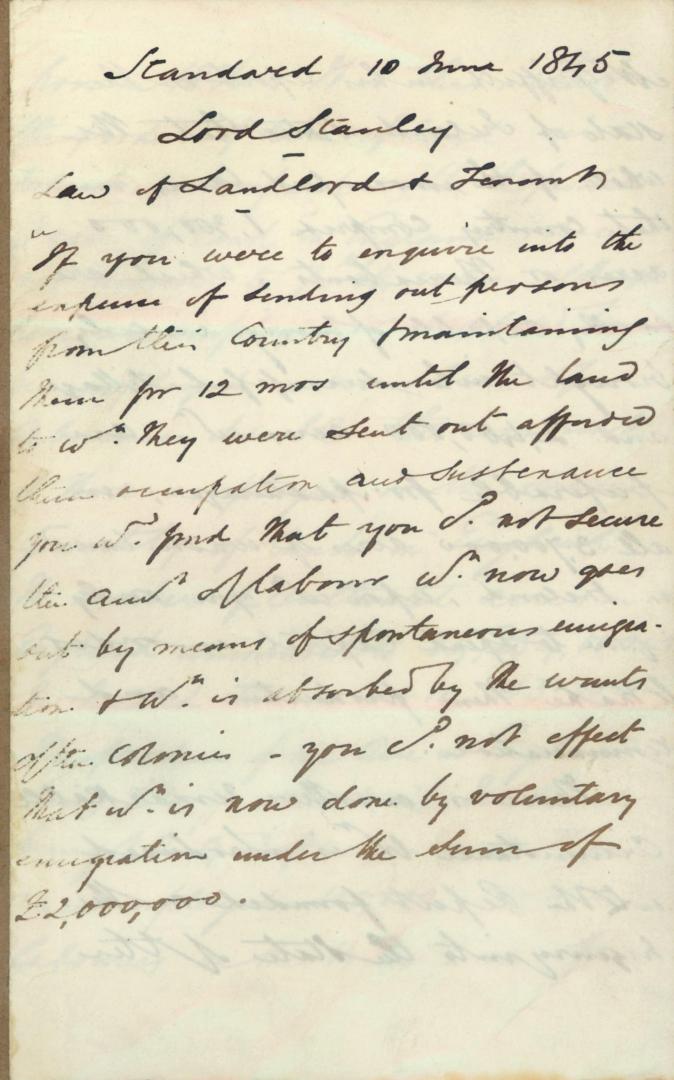 Standard 10 June 1845
Lord Stanley
Law of Landlord & Tenant
"If you were to enquire into the
expense of sending out persons
from this Country & maintaining
them for 12 mos until the land
to wh. they were sent out afforded
them occupation and sustenance
you wd. find that you cd. not secure
the amt of labour wh. now goes
out by means of spontaneous emigra-
tion & wh. is absorbed by the wants
of the Colonies - you cd. not effect
that wh. is now done by voluntary
emigration under the sum of
£2,000,000.